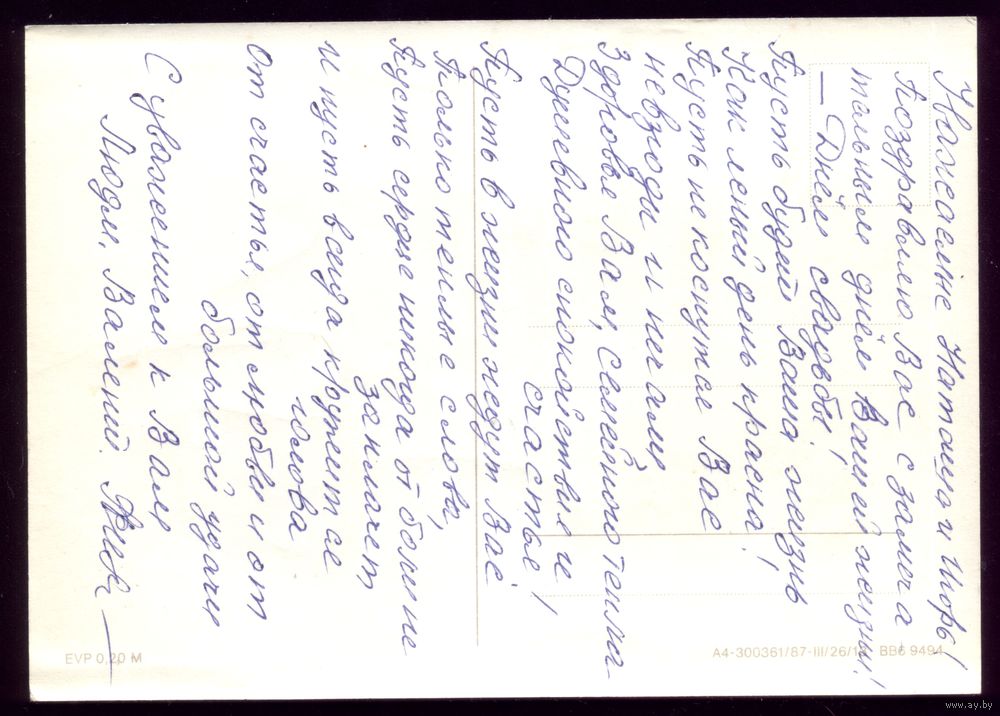 Уважаемые Наташа и Игорь!
Поздравляю Вас с замеча
тельным днём Вашей жизни!
— Днём свадьбы!
Пусть будет Ваша жизнь
Как летний день красна!
Пусть не коснутся Вас
невзгоды и печали
Здоровье Вам, семейного тепла
Душевного спокойствия и
счастье!
Пусть в жизни ждут Вас
только теплые слова,
Пусть сердце никогда от боли не
заплачет
И пусть всегда кружится
голова
От счастья, от любви и от
большой удачи
С уважением к Вам
Люди, Валений.
EVP 0,20 M
A4-300361/87-III/26/18 BB6 9494
www.ay.by